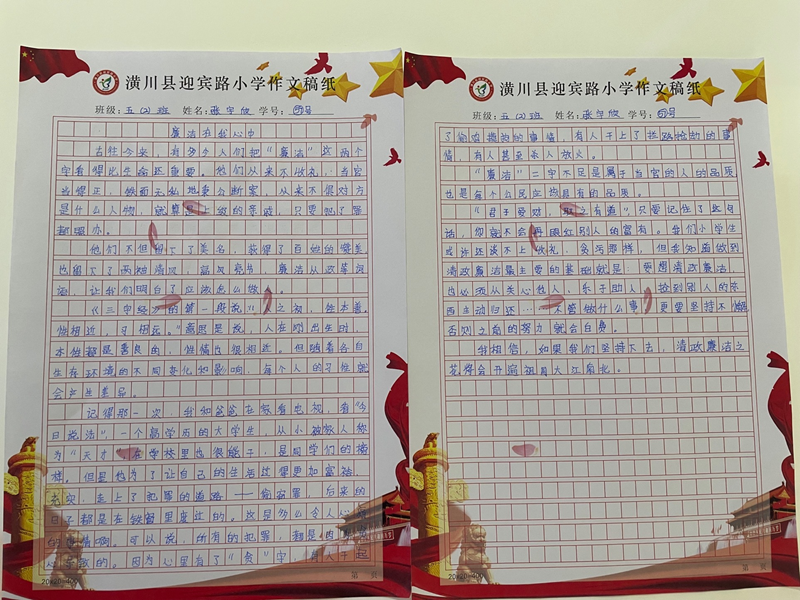 潢川县迎宾路小学作文稿纸
班级：五(2)班 姓名：张宇 学号：号
廉洁在我心中
古往今来，有多少人们把“廉洁”这两个
字看得比生命还重要。他们从来不收礼，当官
当得正，铁面无私地秉公断案，从来不很对方
是什么人物，就算是上级的亲戚，只要犯了罪
都照办。
他们不但留下了美名，获得了百姓的赞美
也留下了两袖清风，高风亮节，廉洁从政等词
语，让我们明白了应该怎么做人。
《三字经》的第一段说“人之初，性本善。
性相近，习相远。”意思是说，人在刚出生时，
本性都是善良的，性情也很相近。但随着各自
生存环境的不同变化和影响，每个人的习性就
会产生差异。
记得那一次，我和爸爸在家看电视，看“今
日说法”，一个高学历的大学生，从小被家人称
为“天才”，在学校里也很能干，是同学们的榜
样，但是他为了让自己的生活过得更加富裕、
充实，走上了犯罪的道路——偷窃罪，后来的
日子都是在铁窗里度过的。这是多么令人心
的事情啊。可以说，所有的犯罪，都是
心导致的。因为心里有了“贪”字，有人干起
20×20=400
第 页
潢川县迎宾路小学作文稿纸
班级：五(2)班 姓名：张宇 学号：号
了偷鸡摸狗的事情，有人干上了拦路抢劫的事
情，有人甚至杀人放火。
“廉洁”二字不只是属于当官的人的品质
也是每个公民应该具有的品质。
“君子爱财，取之有道”，只要记住了这句
话，你就不会再眼红别人的富有。我们小学生
或许还谈不上收礼、贪污那样，但我知道做到
清政廉洁最主要的基础就是，要想清政廉洁，
也必须从关心他人，乐于助人，捡到别人的东
西主动归还……不管做什么事，更要坚持不懈
否则之前的努力就会白费。
我相信，如果我们坚持下去，清政廉洁之
花得会开遍祖国大江南北。
20×20=400
第 页